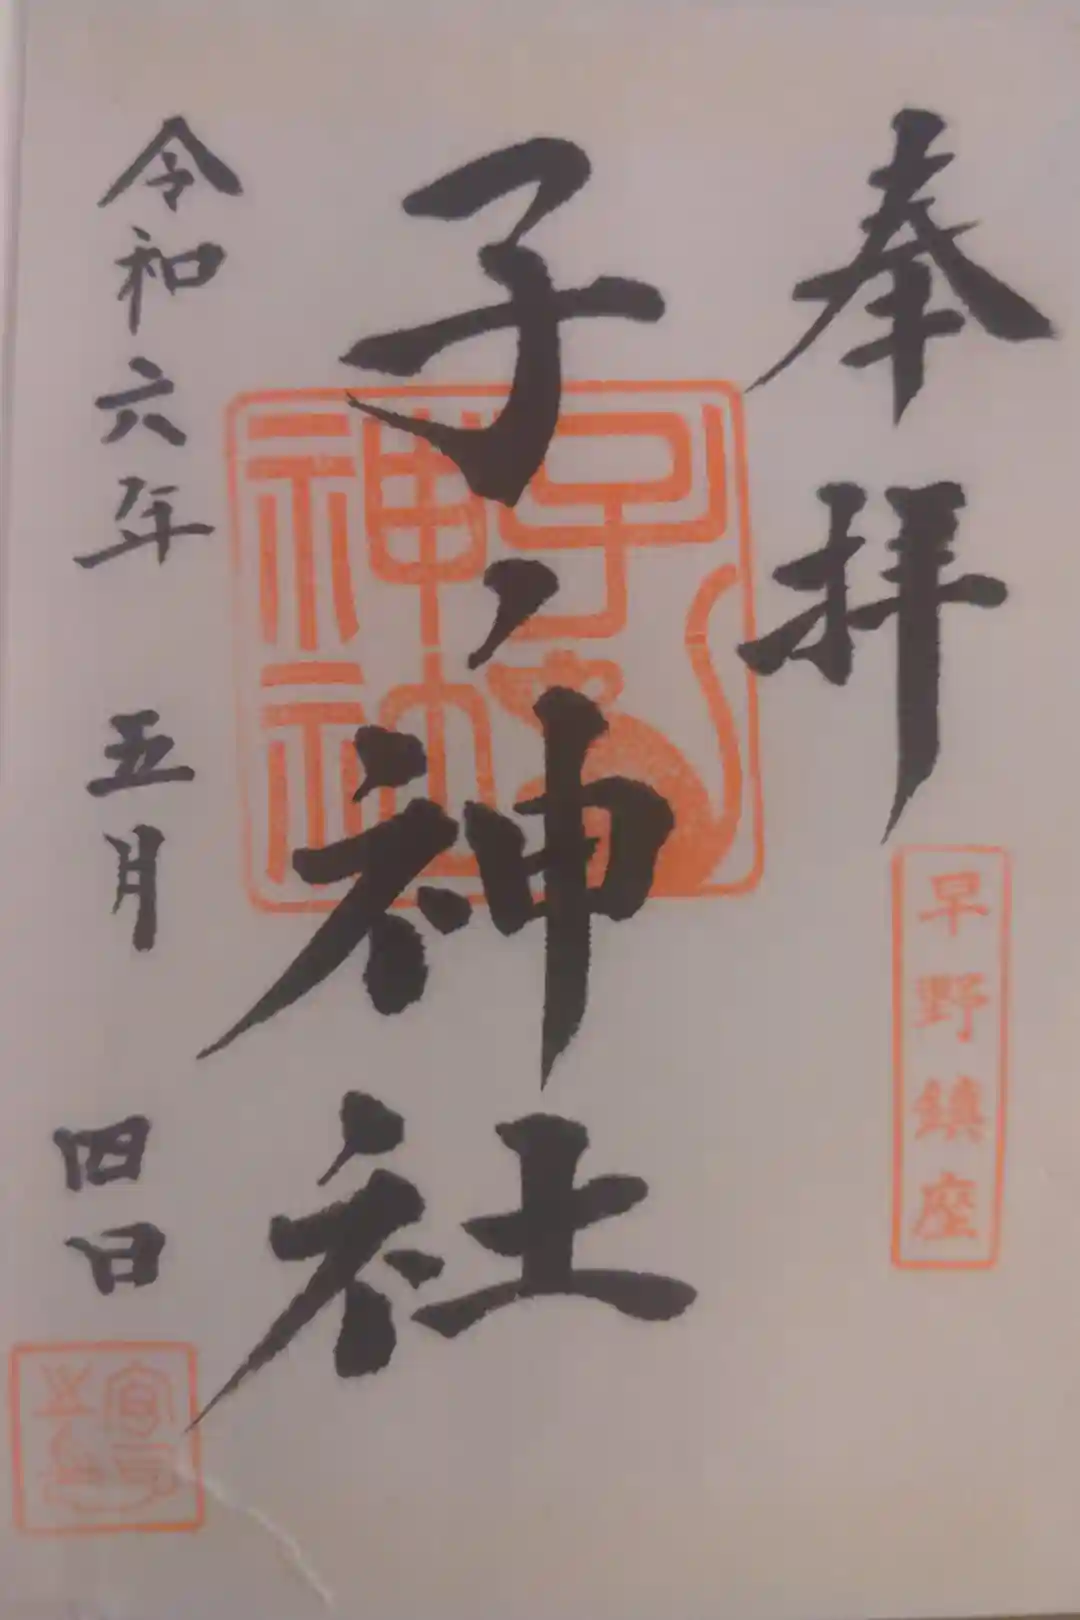 奉拝
早野鎮座
子ノ神社
子神社
令和六年 五月 四日